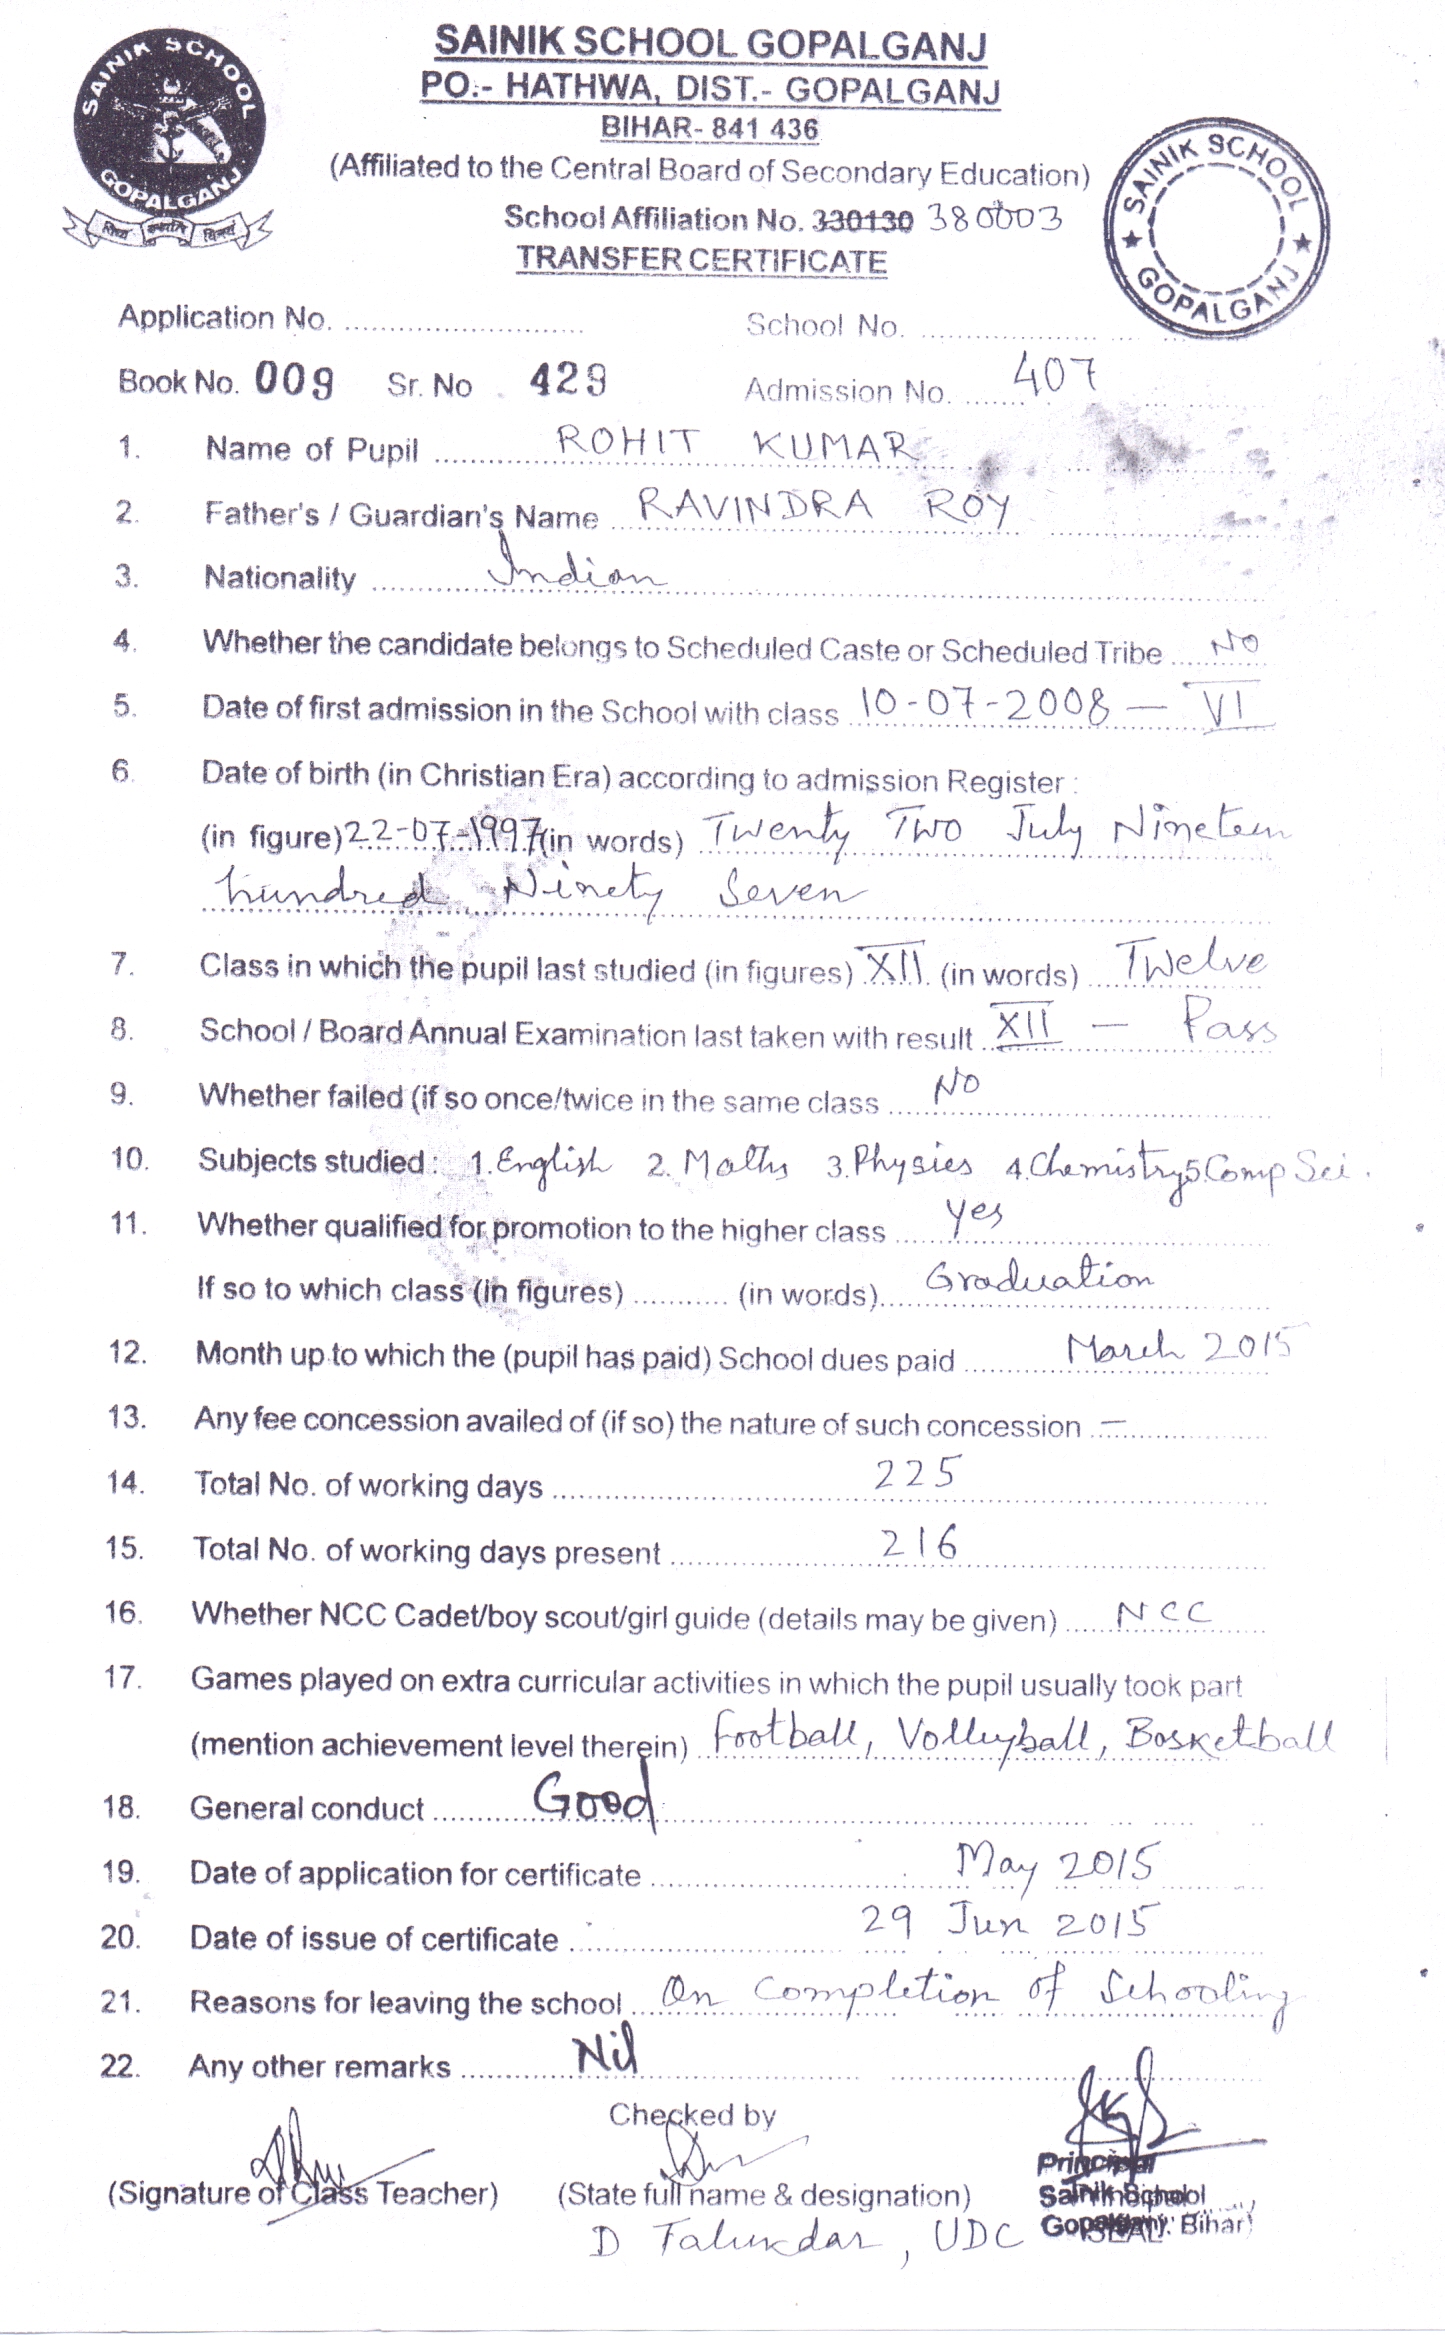 SAINIK SCHOOL GOPALGANJ
SAINIK SCHOOL GOPALGANJ
PO.- HATHWA, DIST.- GOPALGANJ
BIHAR- 841 436
(Affiliated to the Central Board of Secondary Education)
School Affiliation No. 330130 380003
TRANSFER CERTIFICATE
SAINIK SCHOOL ★ GOPALGANJ ★
Application No. School No.
Book No. 009 Sr. No 429 Admission No. 407
1. Name of Pupil ROHIT KUMAR
2. Father's / Guardian's Name RAVINDRA ROY
3. Nationality Indian
4. Whether the candidate belongs to Scheduled Caste or Scheduled Tribe NO
5. Date of first admission in the School with class 10-07-2008 — VI
6. Date of birth (in Christian Era) according to admission Register :
(in figure) 22-07-1997 (in words) Twenty Two July Nineteen
hundred Ninety Seven
7. Class in which the pupil last studied (in figures) XII (in words) Twelve
8. School / Board Annual Examination last taken with result XII — Pass
9. Whether failed (if so once/twice in the same class NO
10. Subjects studied : 1. English 2. Maths 3. Physics 4. Chemistry 5. Comp Sci.
11. Whether qualified for promotion to the higher class Yes
If so to which class (in figures) (in words) Graduation
12. Month up to which the (pupil has paid) School dues paid March 2015
13. Any fee concession availed of (if so) the nature of such concession —
14. Total No. of working days 225
15. Total No. of working days present 216
16. Whether NCC Cadet/boy scout/girl guide (details may be given) NCC
17. Games played on extra curricular activities in which the pupil usually took part
(mention achievement level therein) Football, Volleyball, Basketball
18. General conduct Good
19. Date of application for certificate May 2015
20. Date of issue of certificate 29 Jun 2015
21. Reasons for leaving the school On Completion of Schooling
22. Any other remarks Nil
Checked by
Principal
(Signature of Class Teacher) (State full name & designation) Sainik School
D Talukdar, UDC Gopalganj (Bihar)
SEAL